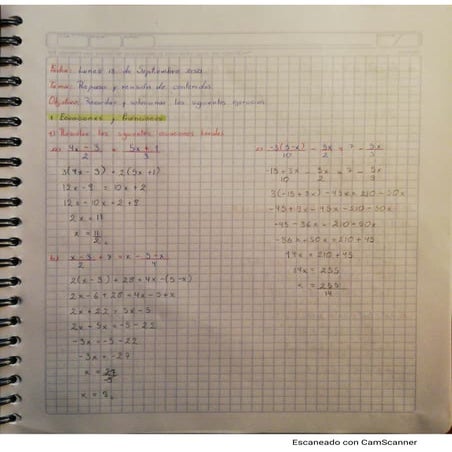 Fecha: Lunes 13 de Septiembre 2021
Tema: Repaso y revisión de contenidos.
Objetivo: Recordar y solucionar los siguientes ejercicios.
1. Ecuaciones y Funciones
1) Resolver las siguientes ecuaciones lineales
a) 4x - 3 / 2 = 5x + 1 / 3
3(4x - 3) = 2(5x + 1)
12x - 9 = 10x + 2
12x - 10x = 2 + 9
2x = 11
x = 11/2
b) x - 3 / 2 + 7 = x - 5 + x / 4
2(x - 3) + 28 = 4x - (5 - x)
2x - 6 + 28 = 4x - 5 + x
2x + 22 = 5x - 5
2x - 5x = -5 - 22
-3x = -5 - 22
-3x = -27
x = 27/3
x = 9
c) -3(5 - x) / 10 - 3x / 2 = 7 - 5x / 3
-15 + 3x / 10 - 3x / 2 = 7 - 5x / 3
3(-15 + 3x) - 45x = 210 - 50x
-45 + 9x - 45x = 210 - 50x
-45 - 36x = 210 - 50x
-36x + 50x = 210 + 45
14x = 210 + 45
14x = 255
x = 255/14
Escaneado con CamScanner